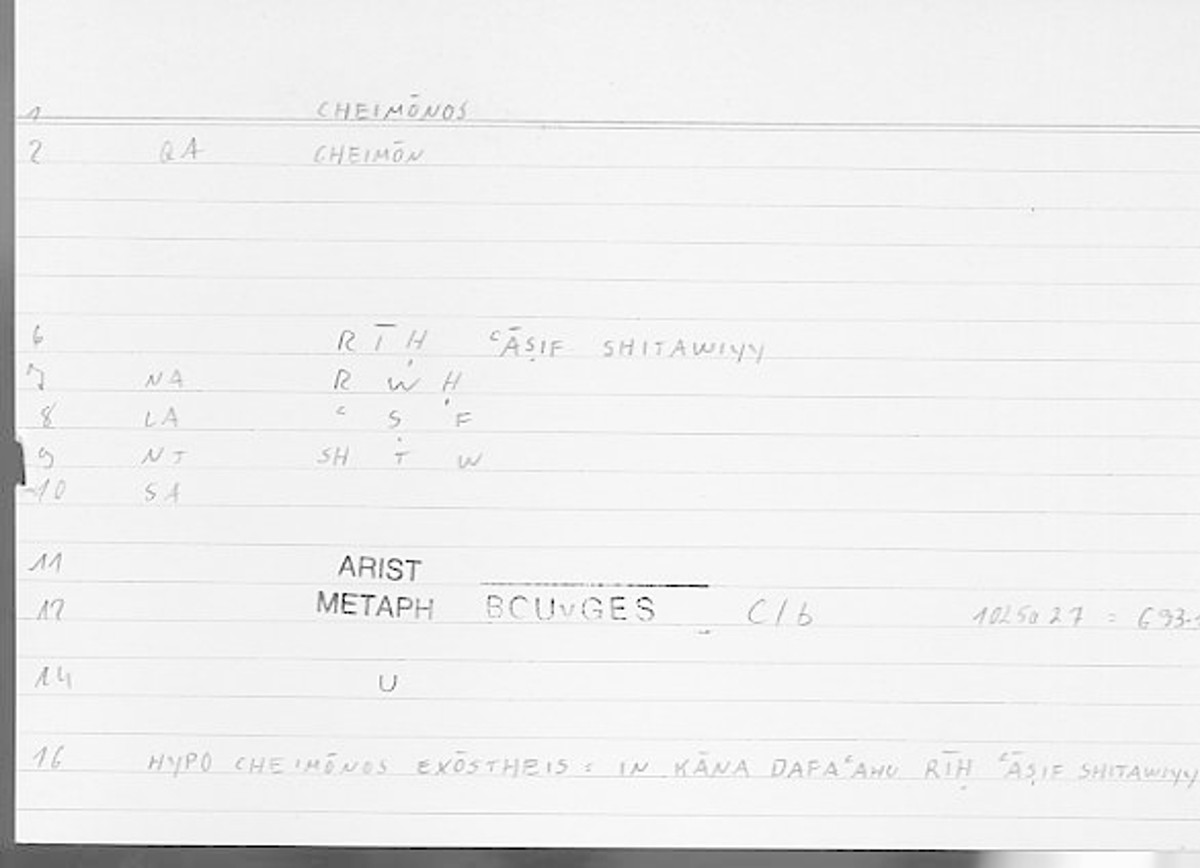 1 CHEIMŌNOS
2 QA CHEIMŌN
6 RĪḤ ʿĀṢIF SHITAWIYY
7 NA R W Ḥ
8 LA ʿ Ṣ F
9 NT SH T W
10 SA
11 ARIST
12 METAPH BCUvGES C/b 1025a27 = 693-
14 U
16 HYPO CHEIMŌNOS EXŌSTHEIS : IN KĀNA DAFAʿAHU RĪḤ ʿĀṢIF SHITAWIYY